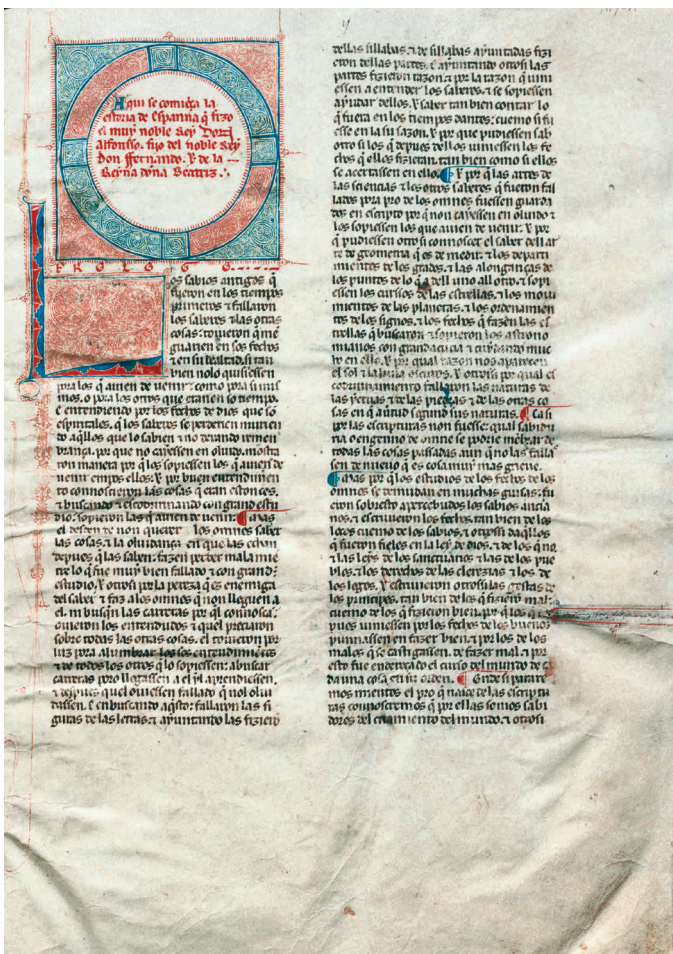 Aqui se comiença la
estoria de Espanna q̃ fizo
el muy noble Rey Don
Alfonsso. fijo del noble Rey
Don fferrnando. ⁊ de la
Reyna donna Beatriz.
PROLOGO
os sabios antigos q̃
fueron en los tiempos
primeros ⁊ fallaron
los saberes ⁊ las otras
cosas. touieron q̃ me
guarien en sos fechos
⁊ en su lealtad. si tan
bien no lo quisiessen
pora los q̃ auien de uenir. como pora si mis
mos. o pora los otros que eran en so tiempo.
E entendiendo por los fechos de dios que son
espiritales. q̃ los saberes se perderien murien
do aq̃llos que lo sabien ⁊ no dexando remen
brança. por que no cayessen en oluido. mostra
ron manera por q̃ los sopiessen los q̃ auien de
uenir empos ellos. ⁊ por buen entendimien
to connoscieron las cosas q̃ eran estonces.
⁊ buscando ⁊ escodrinnando con grand estu
dio. sopieron las q̃ auien de uenir. ¶ Mas
el desden de non querer los omnes saber
las cosas. ⁊ la oluidança en que las echan
depues que las saben. fazen perder mala mie
tre lo que fue muy bien fallado ⁊ con grand
estudio. ⁊ otrosi por la pereza q̃ es enemiga
del saber ⁊ faz a los omnes q̃ non lleguen a
el. ni busq̃n las carreras por q̃l connosca.
ouieron los entendudos ⁊ quel preciaron
sobre todas las otras cosas. el touieron por
luz pora alumbrar los sos entendimientos
⁊ de todos los otros q̃ lo sopiessen. a buscar
carreras por o llegassen a el yl aprendiessen.
⁊ despues quel ouiessen fallado q̃ nol olui
dassen. E en buscando aq̃sto. fallaron las fi
guras de las letras. ⁊ ayuntando las fizieron
dellas sillabas. ⁊ de sillabas ayuntadas fizi
eron dellas partes. E ayuntando otrosi las
partes fizieron razon. ⁊ por la razon q̃ uini
essen a entender los saberes. ⁊ se sopiessen
ayudar dellos. ⁊ saber tan bien contar lo
q̃ fuera en los tiempos dantes. cuemo si fu
esse en la su sazon. ⁊ por que pudiessen sab
otrosi los q̃ depues dellos uiniessen los fe
chos q̃ ellos fizieran. tan bien como si ellos
se acertassen en ello. ¶ ⁊ por q̃ las artes de
las sciencias ⁊ los otros saberes q̃ fueron fal
lados pora pro de los omnes fuessen guarda
dos en escripto por q̃ non cayessen en oluido ⁊
los sopiessen los que auien de uenir. ⁊ por
q̃ pudiessen otrosi connoscer el saber dell ar
te de geometria q̃ es de medir. ⁊ los departi
mientos de los grados. ⁊ las alongançes de
los puntos de lo q̃ a dell uno all otro. ⁊ sopi
essen los cursos de las estrellas. ⁊ los moui
mientos de las planetas. ⁊ los ordenamien
tos de los signos. ⁊ los fechos q̃ fazen las es
trellas q̃ buscaron ⁊ sopieron los astrono
mianos con grand acucia ⁊ cuydando mu
cho en ello. ⁊ por qual razon nos aparecen
el sol ⁊ la luna oscuros. ⁊ otrosi por qual es
codrinnamiento fallaron las naturas de
las yeruas ⁊ de las piedras ⁊ de las otras co
sas en q̃ a uirtud segund sus naturas. ¶ Ca si
por las escripturas non fuesse. qual sabidu
ria o engenno de omne se podrie menbrar de
todas las cosas passadas aun q̃ no las falla
ssen de nueuo q̃ es cosa muy mas grieue.
¶ Mas por q̃ los estudios de los fechos de los
omnes se demudan en muchas guisas. fu
eron sobresto apercebudos los sabios ancia
nos. ⁊ escriuieron los fechos tan bien de los
locos cuemo de los sabios. ⁊ otrossi daq̃llos
q̃ fueron fieles en la ley de dios. ⁊ de los q̃ no.
⁊ las leys de los sanctuarios ⁊ las de los pue
blos. ⁊ los derechos de las clerezias ⁊ los de
los legos. ⁊ escriuieron otrossi las gestas de
los principes. tan bien de los q̃ fizieron mal.
cuemo de los q̃ fizieron bien. por q̃ los q̃ de
pues uiniessen por los fechos de los buenos
punnassen en fazer bien. ⁊ por los de los
malos q̃ se castigassen de fazer mal. ⁊ por
esto fue endereçado el curso del mundo de ca
da una cosa en su orden. ¶ Onde si parare
mos mientes el pro q̃ nace de las escriptu
ras connosceremos q̃ por ellas somos sabi
dores del criamiento del mundo. ⁊ otrosi